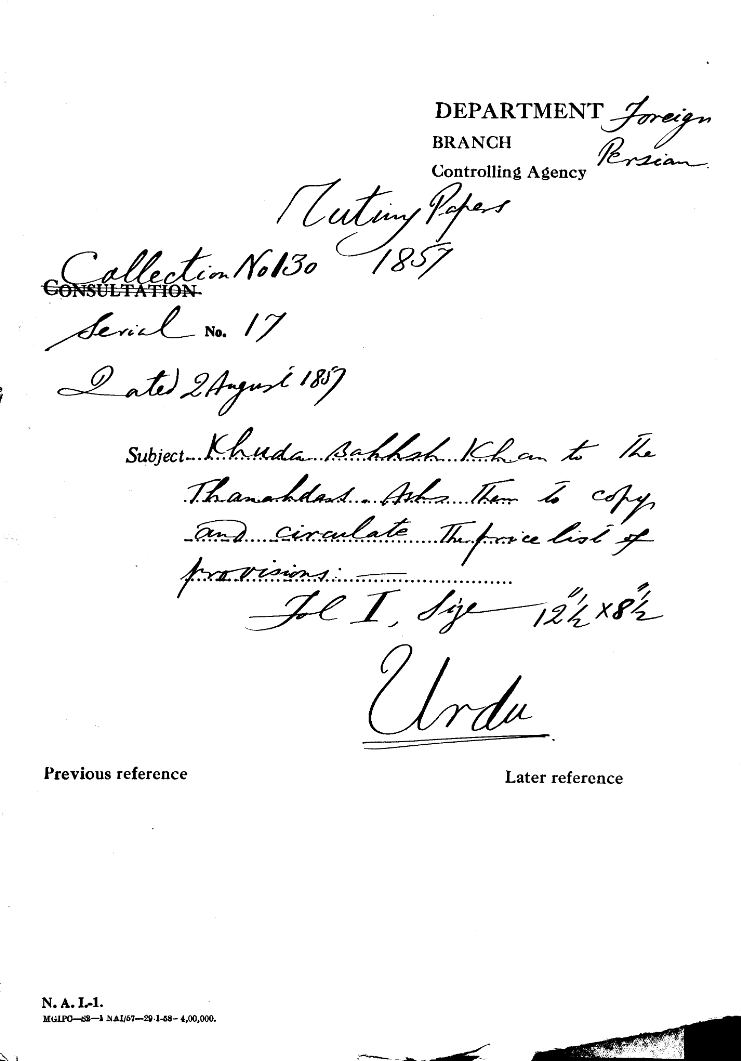 DEPARTMENT Foreign
BRANCH
Controlling Agency Persian
Mutiny Papers
1857
Collection No 130
CONSULTATION
Serial No. 17
Dated 2 August 1857
Subject Khuda Bakhsh Khan to the
Thanahdars. Asks them to copy
and circulate the price list of
provisions: —
Fol I, Size 12½" x 8½"
Urdu
Previous reference
Later reference
N. A. I.-1.
MGIPC—S3—1 NAI/57—29-1-58—4,00,000.